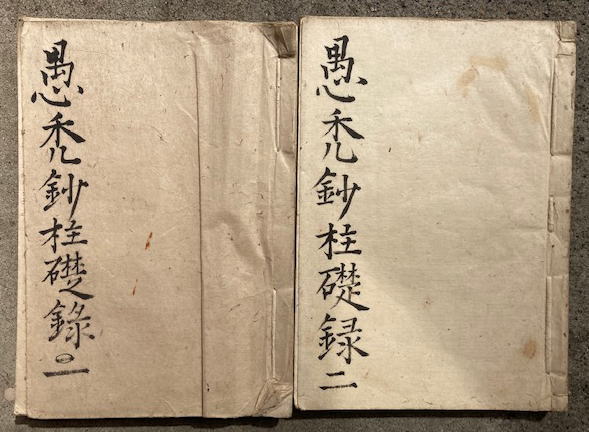 愚禿鈔柱礎錄○一
愚禿鈔柱礎録二